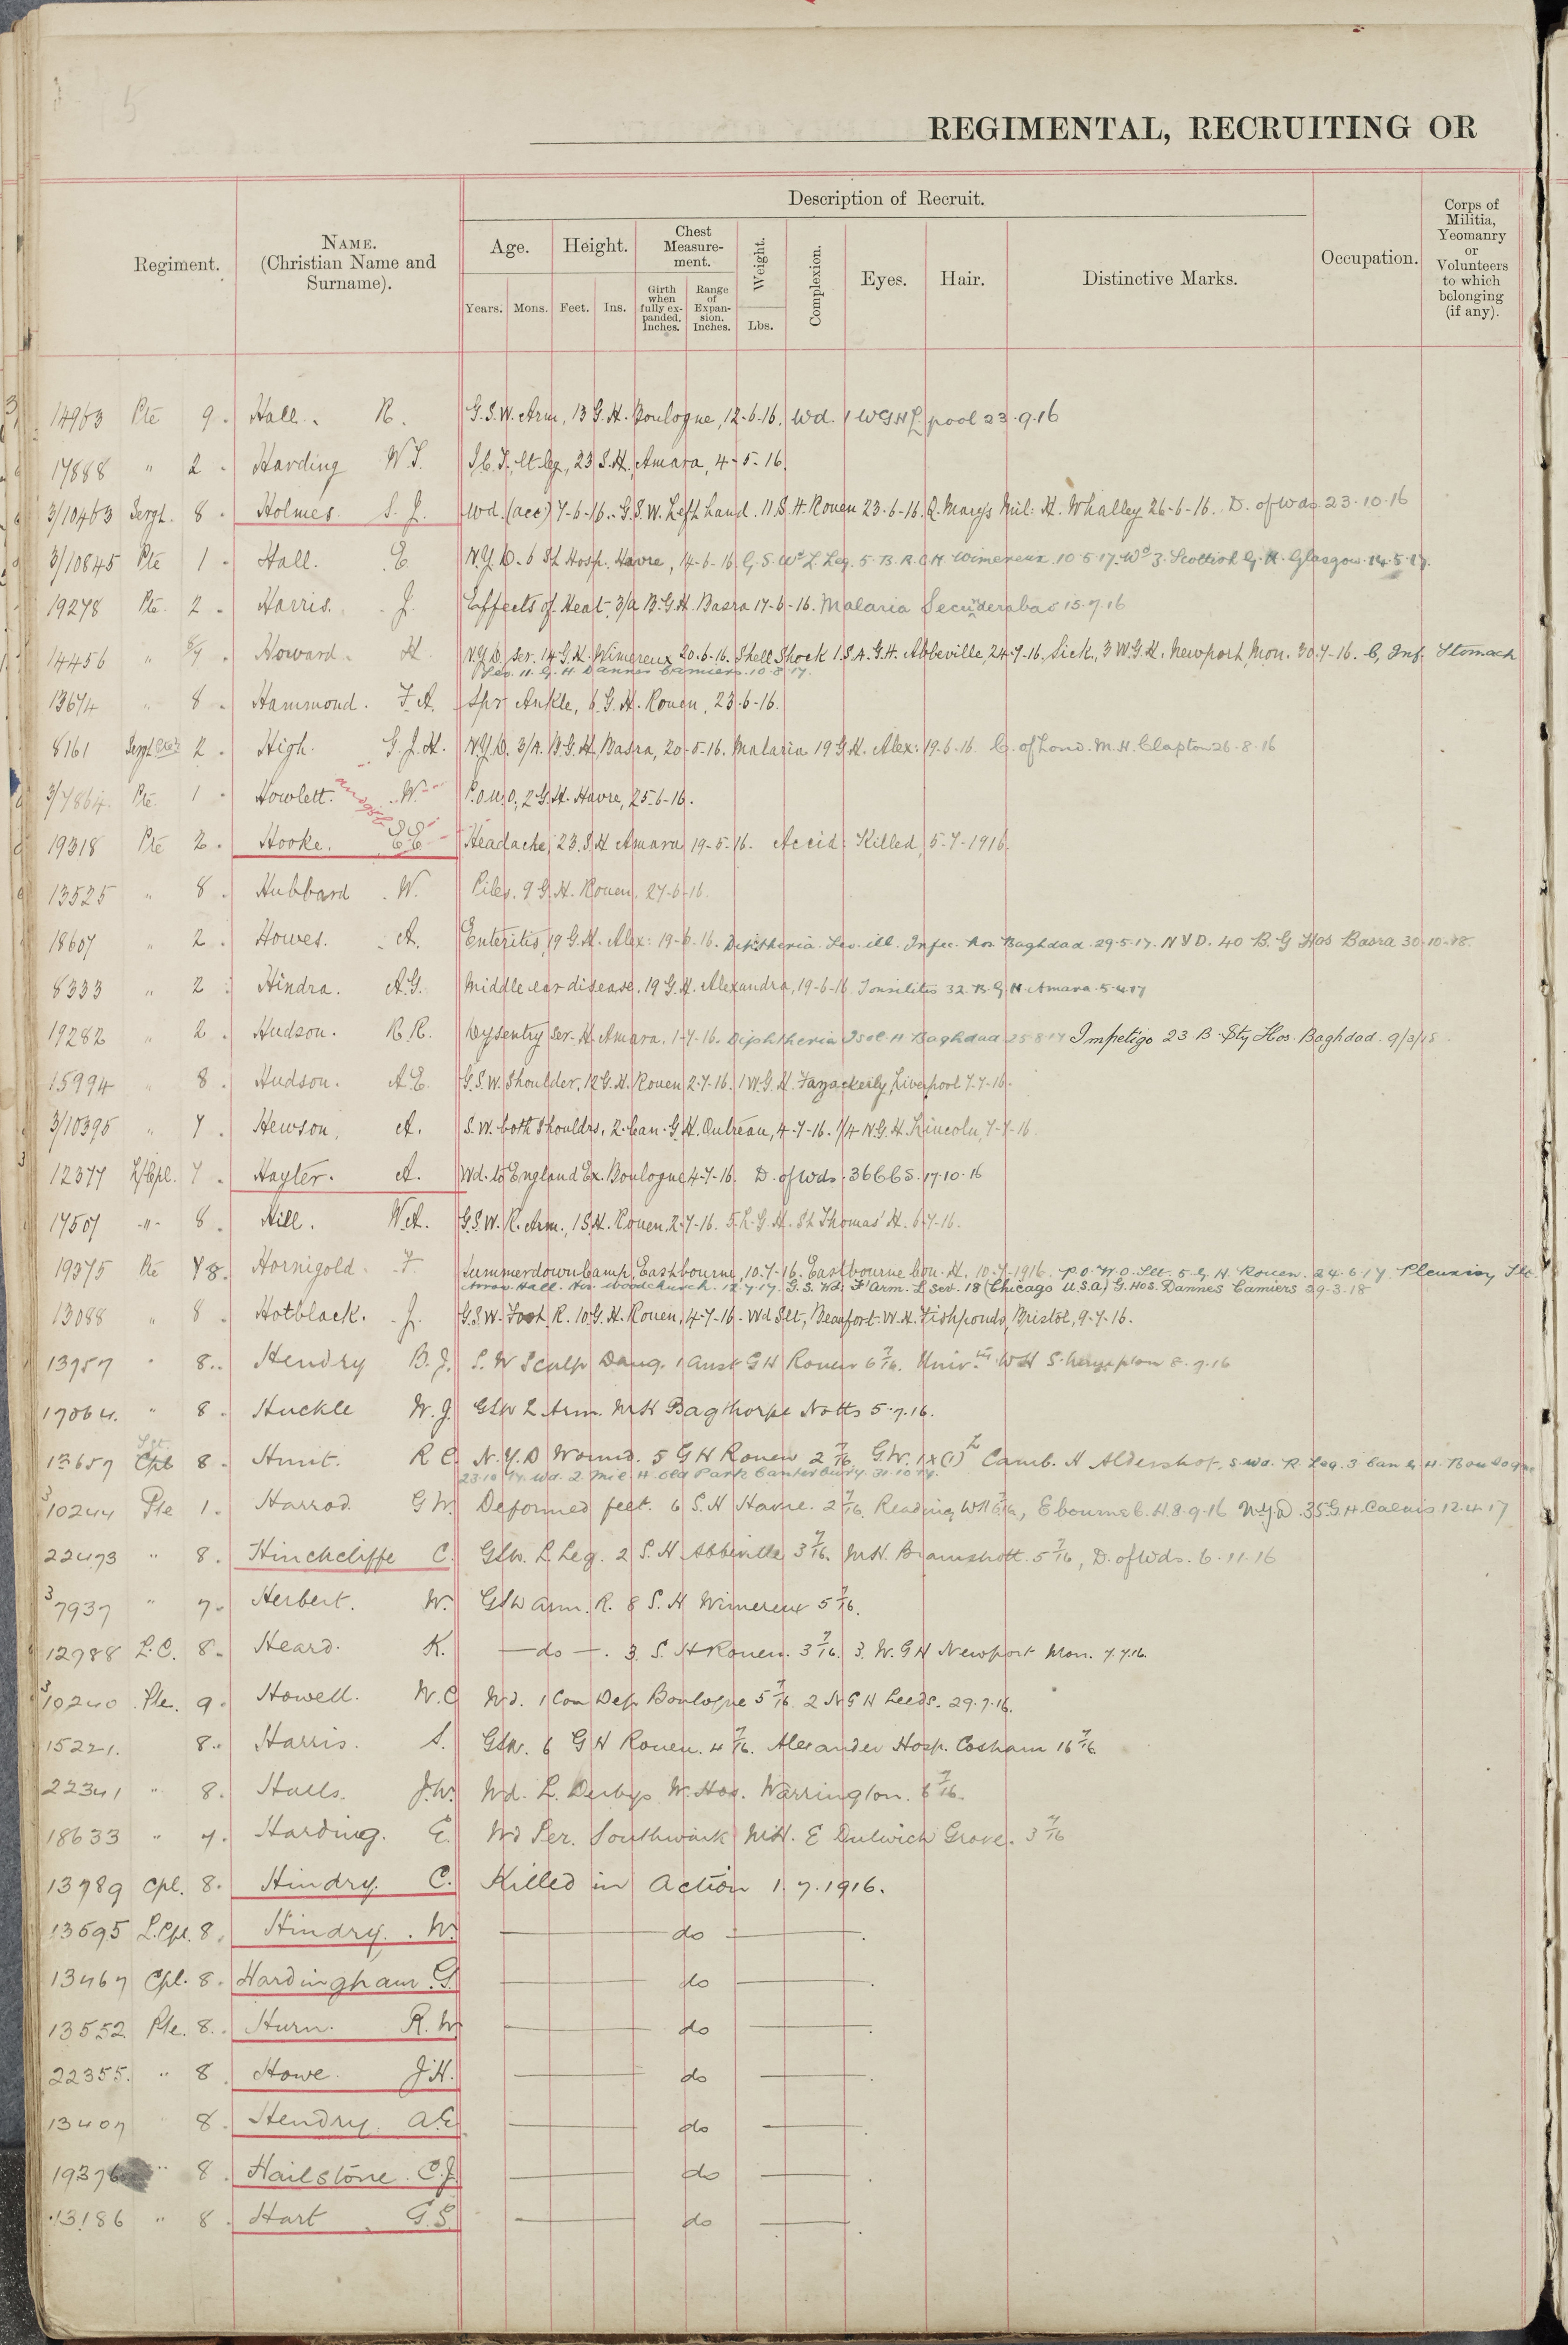 REGIMENTAL, RECRUITING OR
Regiment.
NAME.
(Christian Name and
Surname).
Description of Recruit.
Age.
Height.
Chest
Measure-
ment.
Weight.
Complexion.
Eyes.
Hair.
Distinctive Marks.
Occupation.
Corps of
Militia,
Yeomanry
or
Volunteers
to which
belonging
(if any).
Years.
Mons.
Feet.
Ins.
Girth
when
fully ex-
panded.
Inches.
Range
of
Expan-
sion.
Inches.
Lbs.
14963 Pte 9. Hall. R. G.S.W. Arm, 13 G.H. Boulogne, 12-6-16. Wd. 1 WGH L'pool 23.9.16
17888 " 2. Harding W.S. I.C.T. lt leg, 23 S.H. Amara, 4-5-16.
3/10463 Sergt. 8. Holmes S.J. Wd. (acc) 7-6-16. G.S.W. Left hand. 11 S.H. Rouen 23-6-16. Q. Mary's Mil: H. Whalley 26-6-16. D. of Wds. 23-10-16
3/10845 Pte 1. Hall. E. N.Y.D. 6 St Hosp. Havre, 14-6-16 G.S.Wd L. Leg. 5. B.R.C.H. Wimereux 10.5.17. Wd 3. Scottish G.H. Glasgow 14.5.17.
19278 Pte 2. Harris. J. Effects of Heat. 3/A B.G.H. Basra 17-6-16. Malaria Secunderabad 15.7.16
14456 " 8/7. Howard. H. N.Y.D. ser. 14 G.H. Wimereux 20-6-16. Shell Shock 1 S.A.G.H. Abbeville, 24-7-16. Sick, 3 W.G.H. Newport, Mon. 30-7-16. C, Inf. Stomach
11. G.H. Dannes Camiers. 10.8.17.
13674 " 8. Hammond. F.A. Spr Ankle, 6 G.H. Rouen, 23-6-16.
8161 Sergt 2. High. G.J.H. N.Y.D. 3/A. B.G.H. Basra, 20-5-16. Malaria 19 G.H. Alex: 19-6-16. C. of Lond. M.H. Clapton 26-8-16
3/7864 Pte. 1. Howlett. W. P.O.U.O, 2 G.H. Havre, 25-6-16.
19318 Pte 2. Hooke. E.E. Headache, 23. S.H Amara 19-5-16. Accid: Killed, 5-7-1916.
13525 " 8. Hubbard W. Piles. 9 G.H. Rouen. 27-6-16.
18607 " 2. Howes. A. Enteritis, 19 G.H. Alex: 19-6-16. Diphtheria. Sev. ill. Infec. Hos Baghdad. 29-5-17. N Y D. 40 B.G Hos Basra 30-10-18.
8333 " 2. Hindra. A.G. Middle ear disease. 19 G.H. Alexandra, 19-6-16 Tonsilitis 32. B.G.H. Amara. 5.4.17
19282 " 2. Hudson. R.R. Dysentry ser. H. Amara. 1-7-16. Diphtheria Isol. H. Baghdad 25-8-17 Impetigo 23 B. Sty Hos. Baghdad. 9/3/18
15994 " 8. Hudson. A.E. G.S.W. Shoulder, 12 G.H. Rouen 2-7-16. 1 W.G.H. Fazackerly, Liverpool 7-7-16.
3/10395 " 7. Hewson, A. S.W. both Shouldrs, 2. Can. G.H. Outreau, 4-7-16. 1/4 N.G.H. Lincoln, 7-7-16.
12377 L/Cpl. 7. Hayter. A. Wd. to England Ex. Boulogne 4-7-16. D. of Wds. 36CCS. 17.10.16
17507 -"- 8. Hill. W.A. G.S.W. R. Arm., 1 S.H. Rouen. 2-7-16. 5. L.G.H. St Thomas' H. 6-7-16.
19375 Pte 7 8. Hornigold. F. Summerdown Camp, Eastbourne, 10-7-16. Eastbourne Con. H. 10-7-1916. P.O.W.O. Slt. 5. G.H. Rouen. 24.6.17. Pleurisy Slt.
Arrow Hall. Hos Woodchurch. 12.7.17. G.S. Wd. F'arm. L Sev. 18 (Chicago U.S.A) G. Hos. Dannes Camiers 29-3-18
13088 " 8. Hotblack. J. G.S.W. Foot R. 10 G.H. Rouen, 4-7-16. Wd Slt, Beaufort W.H. Fishponds, Bristol, 9-7-16.
13757 " 8. Hendry B.J. S.W Scalp Dang. 1 Aust G H Rouen 6 7/16. Univ. W H S. hampton 8.7.16
17064. " 8. Huckle W.J. GSW L Arm. MH Bagthorpe Notts 5.7.16.
13657 Sgt Cpl 8. Hunt. R C. N.Y.D Wound. 5 G H Rouen 2 7/16. G.W. 1 X (1) L Camb. H Aldershot, S.Wd. R. Leg. 3 Can G.H. Boulogne
23.10.17. Wd. 2. Mil H. Old Park Canterbury. 31.10.17.
3/10244 Pte 1. Harrod. G W. Deformed feet. 6 S.H Havre. 2 7/16. Reading WH 6 7/16, E bourne C.H. 8.9.16 N.Y.D. 35 G.H. Calais 12.4.17
22473 " 8. Hinchcliffe C. GSW. L Leg. 2 S.H Abbeville 3 7/16. MH. Bramshott. 5 7/16, D. of Wds. 6.11.16
3/7937 " 7. Herbert. W. GSW arm. R. 8 S.H Wimereux 5 7/16.
12988 L.C. 8. Heard. K. — do —. 3. S.H Rouen. 3 7/16. 3. W.G H Newport Mon. 7.7.16.
3/10240 Pte. 9. Howell. W.C Wd. 1 Con Dep Boulogne 5 7/16. 2 N G H Leeds. 29.7.16.
15221. 8. Harris. S. GSW. 6 G H Rouen. 4 7/16. Alexander Hosp. Cosham 16 7/16
22341 " 8. Halls. J.W. Wd. L. Derbys W. Hos. Warrington. 6 7/16.
18633 " 7. Harding. E. Wd Ser. Southwark MH. E Dulwich Grove. 3 7/16
13789 Cpl. 8. Hindry. C. Killed in Action 1.7.1916.
13595 L.Cpl. 8. Hindry. W. — do —.
13467 Cpl. 8. Hardingham G. — do —.
13552 Pte. 8. Hurn. R.W. — do —.
22355. " 8. Howe. J.H. — do —.
13407 8. Hendry. A.E — do —.
19376 " 8. Hailstone. C.J. — do —.
13186 " 8. Hart G.S. — do —.